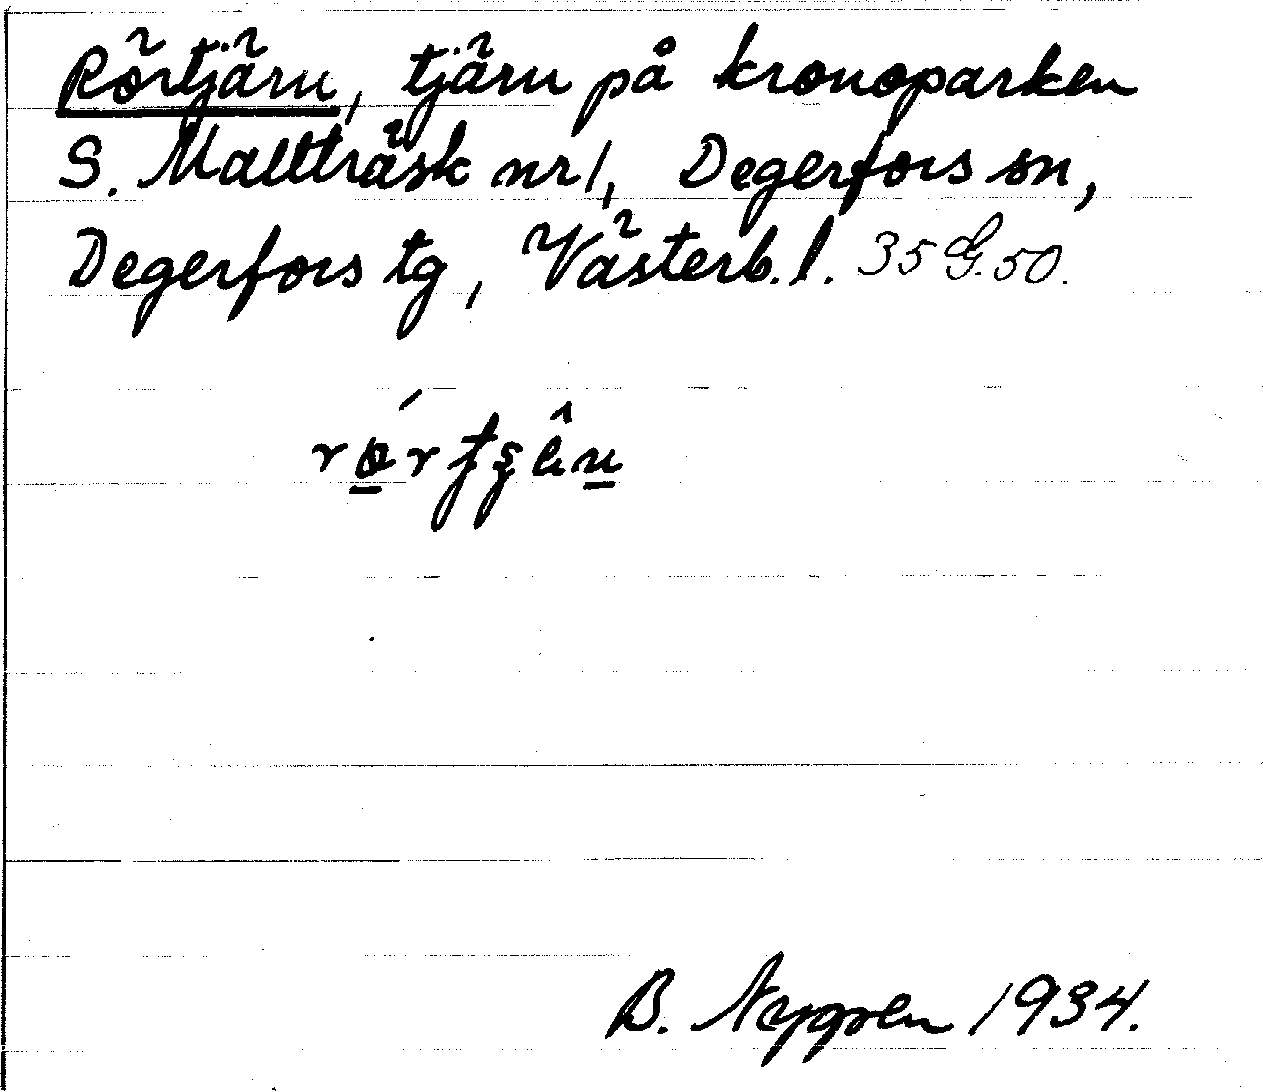 Rörtjärn, tjärn på kronoparken
S. Mallträsk nr 1, Degerfors sn,
Degerfors tg, Västerb. l. 35 G. 50.
B. Nygren 1934.